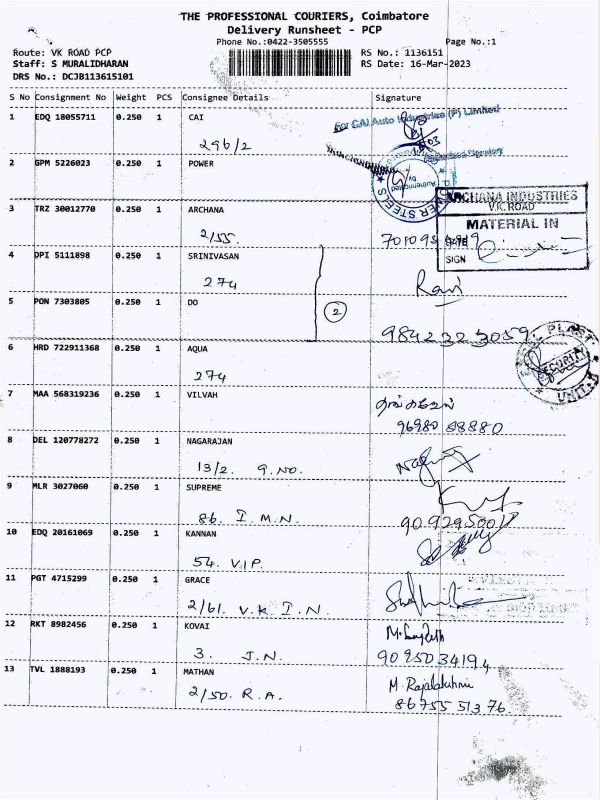 THE PROFESSIONAL COURIERS, Coimbatore
Delivery Runsheet - PCP
Phone No.:0422-3505555 Page No.:1
Route: VK ROAD PCP RS No.: 1136151
Staff: S MURALIDHARAN RS Date: 16-Mar-2023
DRS No.: DCJB113615101
S No Consignment No Weight PCS Consignee Details Signature
1 EDQ 18055711 0.250 1 CAI
For CAI Auto Industries (P) Limited
296/2
Authorised Signatory
2 GPM 5226023 0.250 1 POWER
ER STEELS
ARCHANA INDUSTRIES
V.K. ROAD
MATERIAL IN
SIGN
3 TRZ 30012770 0.250 1 ARCHANA
2/55.
4 DPI 5111898 0.250 1 SRINIVASAN
274 Ravi
5 PON 7303805 0.250 1 DO
2
9842323059
6 HRD 722911368 0.250 1 AQUA
274
SECURITY
UNIT-II
7 MAA 568319236 0.250 1 VILVAH
96980 88880
8 DEL 120778272 0.250 1 NAGARAJAN
13/2. G.NO.
9 MLR 3027060 0.250 1 SUPREME
86. I.M.N.
10 EDQ 20161069 0.250 1 KANNAN
54. V.I.P.
11 PGT 4715299 0.250 1 GRACE
2/61. V.K I.N.
12 RKT 8982456 0.250 1 KOVAI
3. J.N. 9095034194
13 TVL 1888193 0.250 1 MATHAN
2/50. R.A. M. Rajalakshmi
86755 51376.